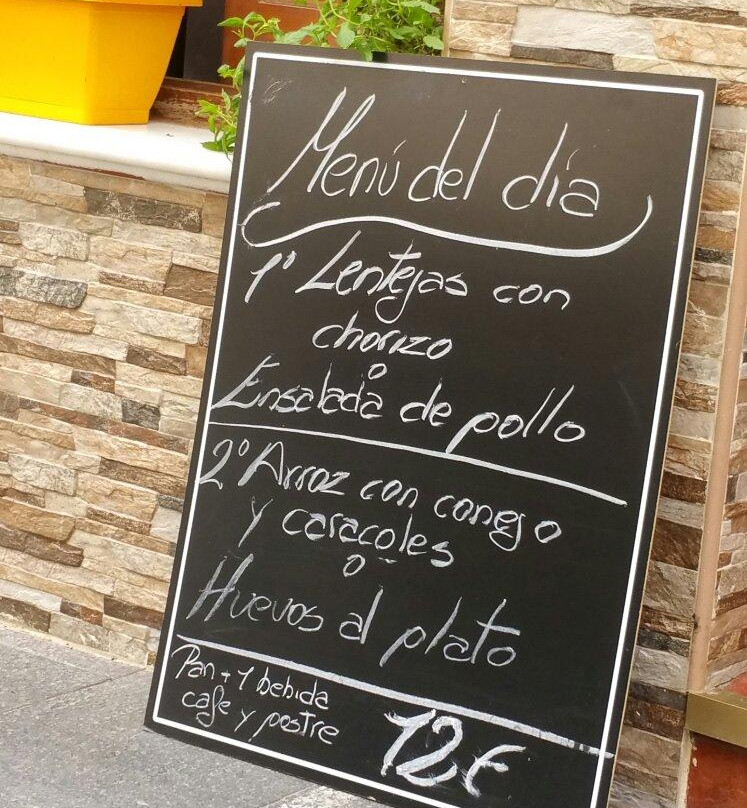 Menú del día
1º Lentejas con
chorizo
o
Ensalada de pollo
2º Arroz con conejo
y caracoles
o
Huevos al plato
Pan + 1 bebida
cafe y postre
12€